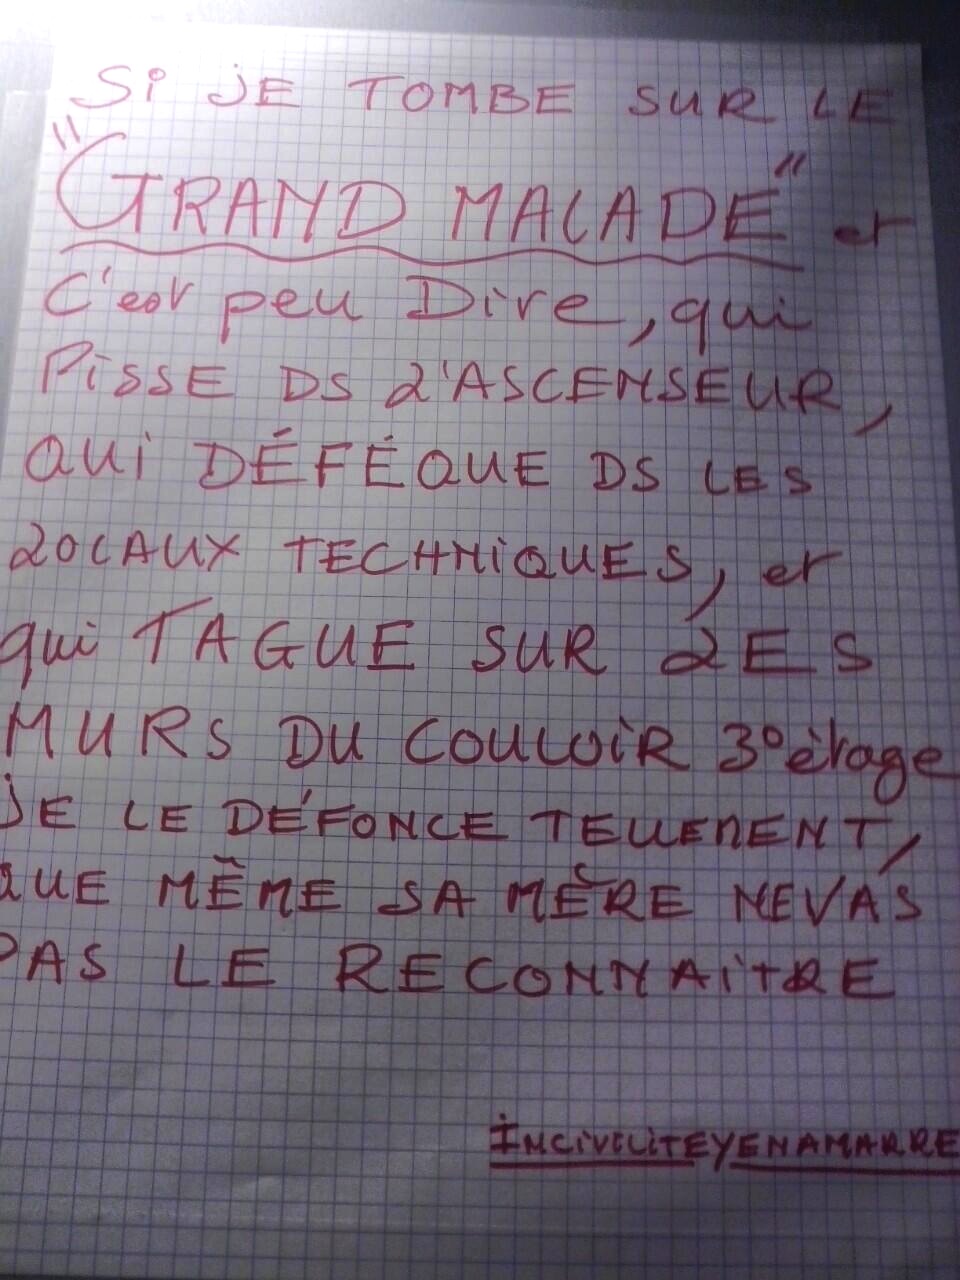 Si JE TOMBE SUR LE
"GRAND MALADE" et
C'est peu Dire, qui
PiSSE DS L'ASCENSEUR,
QUi DÉFÉQUE DS LES
LOCAUX TECHNiQUES, et
qui TAGUE SUR LES
MURS DU COULOiR 3° étage
JE LE DÉFONCE TELLEMENT,
QUE MÊME SA MÈRE NE VAS
PAS LE RECONNAiTRE
#INCiViLiTEYENAMARRE